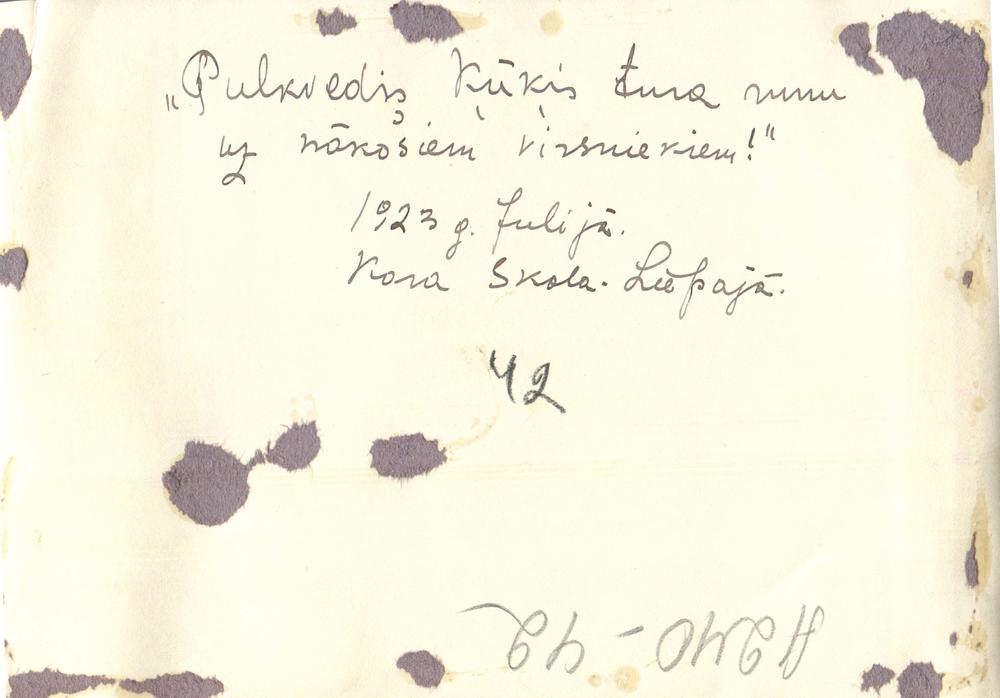 „Pulkvedis Ķūķis tura runu
uz nākošiem virsniekiem!"
1923 g. Julijā.
Kara Skola. Liepājā.
42
A240-42